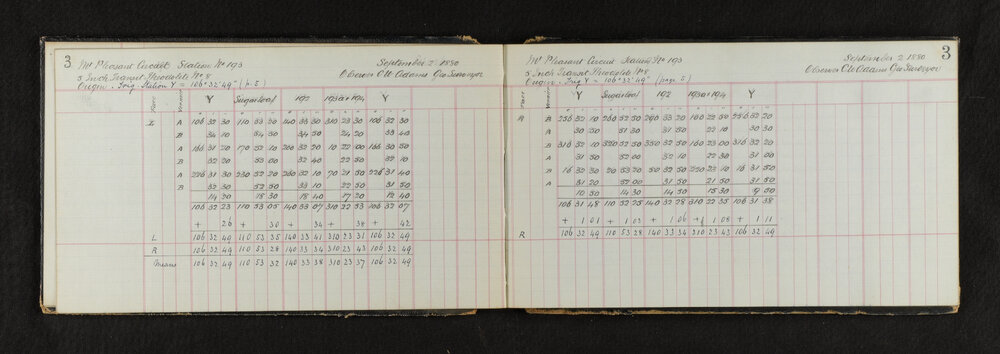 3 Mt Pleasant Circuit Station No 193 September 2 1880
5 Inch Transit Theodolite No 8 Observer C W Adams Geo Surveyor
Origin. Trig Station Y = 106° 32' 49" (p. 5)
Face Vernier Y Sugarloaf 192 193a+194 Y
L A 106 32 30 110 53 20 140 33 30 310 23 30 106 32 30
B 34 10 54 30 34 50 24 20 33 40
A 166 31 20 170 52 10 200 32 20 10 22 00 166 30 50
B 32 20 53 00 32 40 22 50 32 10
A 226 31 30 230 52 20 260 32 10 70 21 50 226 31 40
B 32 30 52 50 33 10 22 50 31 50
14 20 18 30 18 40 17 20 12 40
106 32 23 110 53 05 140 33 07 310 22 53 106 32 07
+ 26 + 30 + 34 + 38 + 42
L 106 32 49 110 53 35 140 33 41 310 23 31 106 32 49
R 106 32 49 110 53 28 140 33 34 310 23 43 106 32 49
Means 106 32 49 110 53 32 140 33 38 310 23 37 106 32 49
Mt Pleasant Circuit Station No 193 September 2 1880 3
5 Inch Transit Theodolite No 8 Observer C W Adams Geo Surveyor
Origin. Trig Y = 106° 32' 49" (page 5)
Face Vernier Y Sugarloaf 192 193a+194 Y
R B 256 32 10 260 52 50 290 33 20 100 22 50 256 32 20
A 30 50 51 30 31 50 22 10 30 30
B 316 32 10 320 52 50 350 32 50 160 23 00 316 32 20
A 31 50 52 00 32 10 22 30 31 00
B 16 32 30 20 53 20 50 32 50 220 23 10 16 31 50
A 31 20 52 00 31 50 21 50 31 50
10 50 14 30 14 50 15 30 9 50
106 31 48 110 52 25 140 32 28 310 22 35 106 31 38
+ 1 01 + 1 03 + 1 06 + 1 08 + 1 11
R 106 32 49 110 53 28 140 33 34 310 23 43 106 32 49